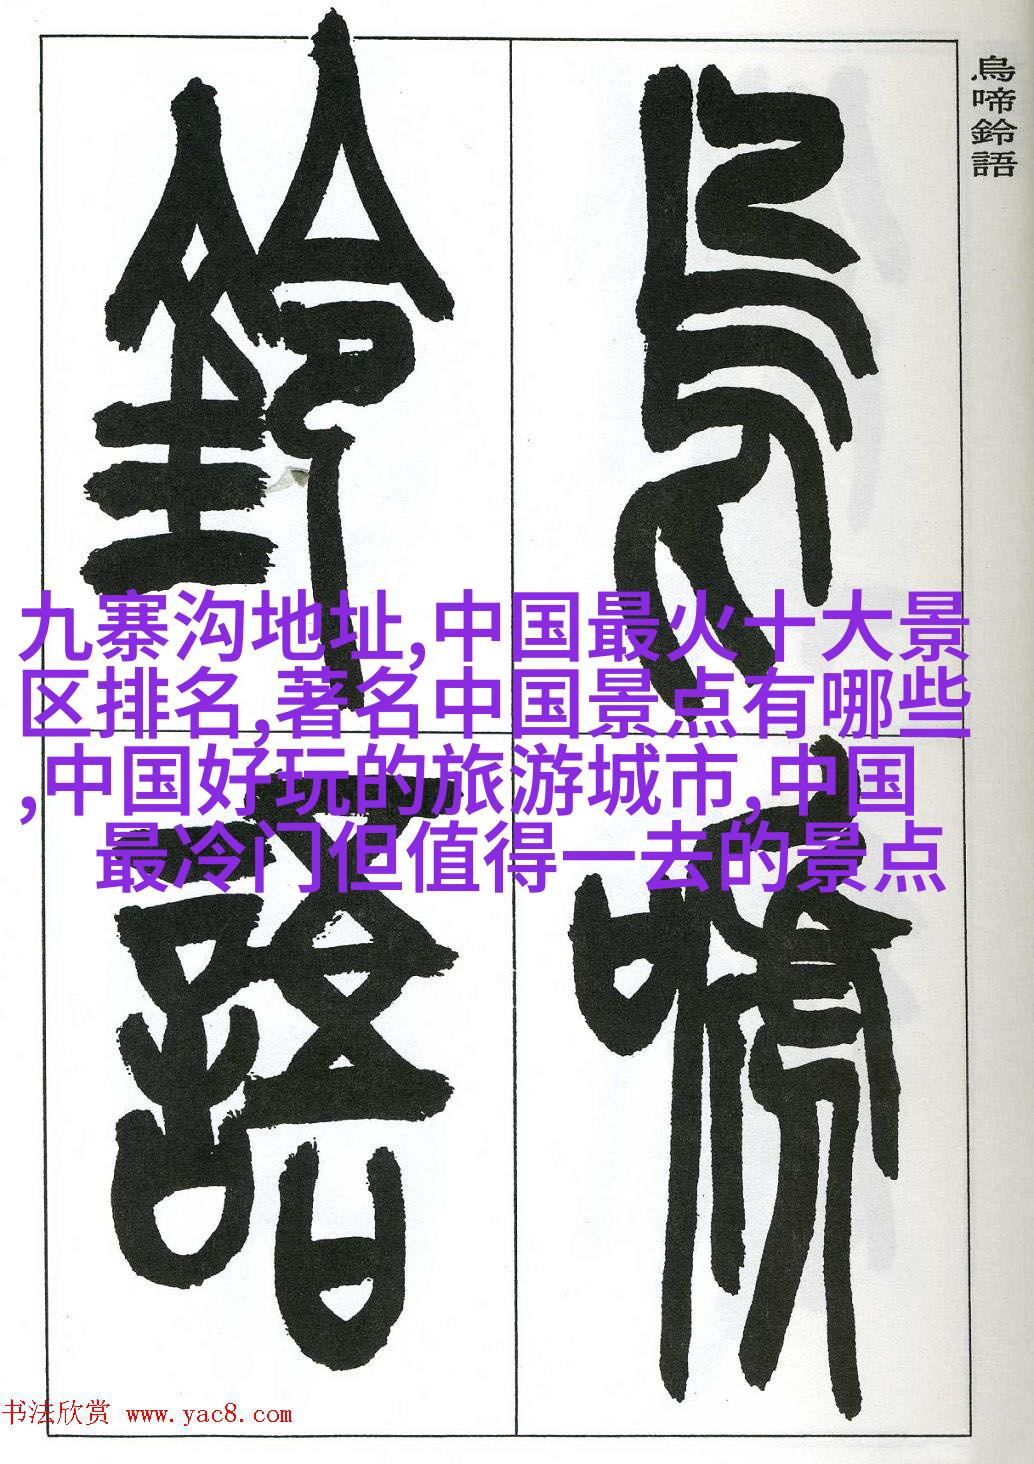 鳥啼鈴語
鳥啼
鈴語
九寨沟地址,中国最火十大景
区排名,著名中国景点有哪些
,中国好玩的旅游城市,中国
最冷门但值得一去的景点
书法欣赏 www.yac8.com